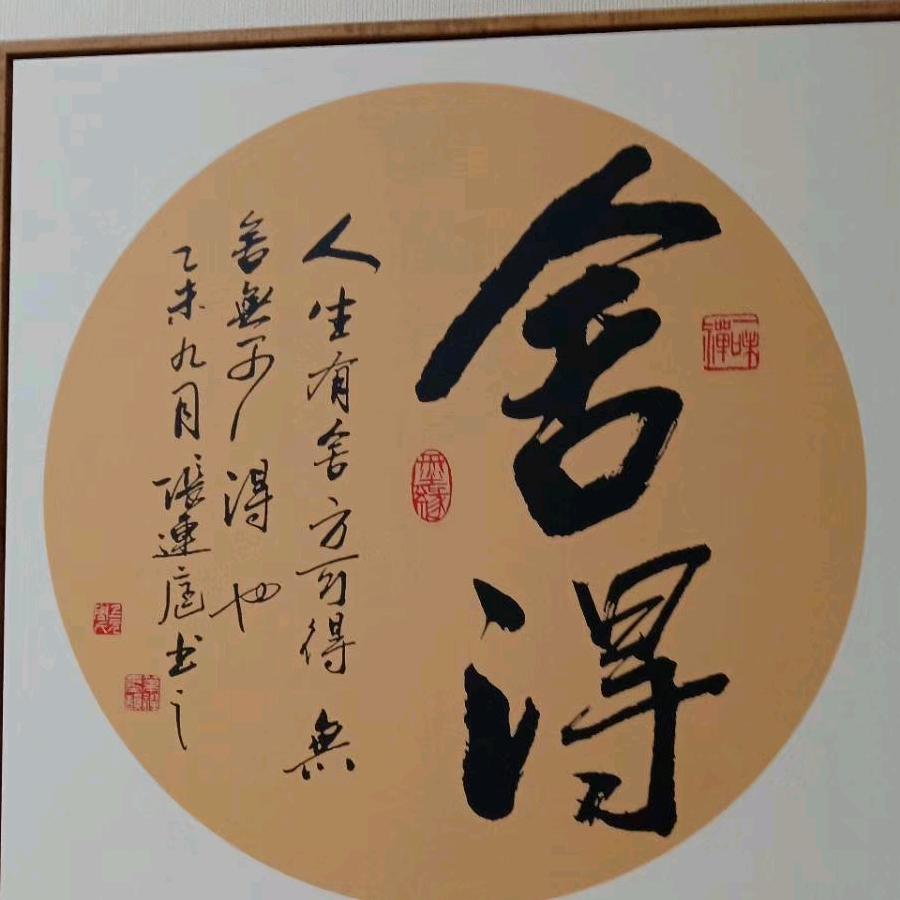 舍得
人生有舍方可得無
舍無不得也
乙未九月張連庭书之
一味禪
無緣